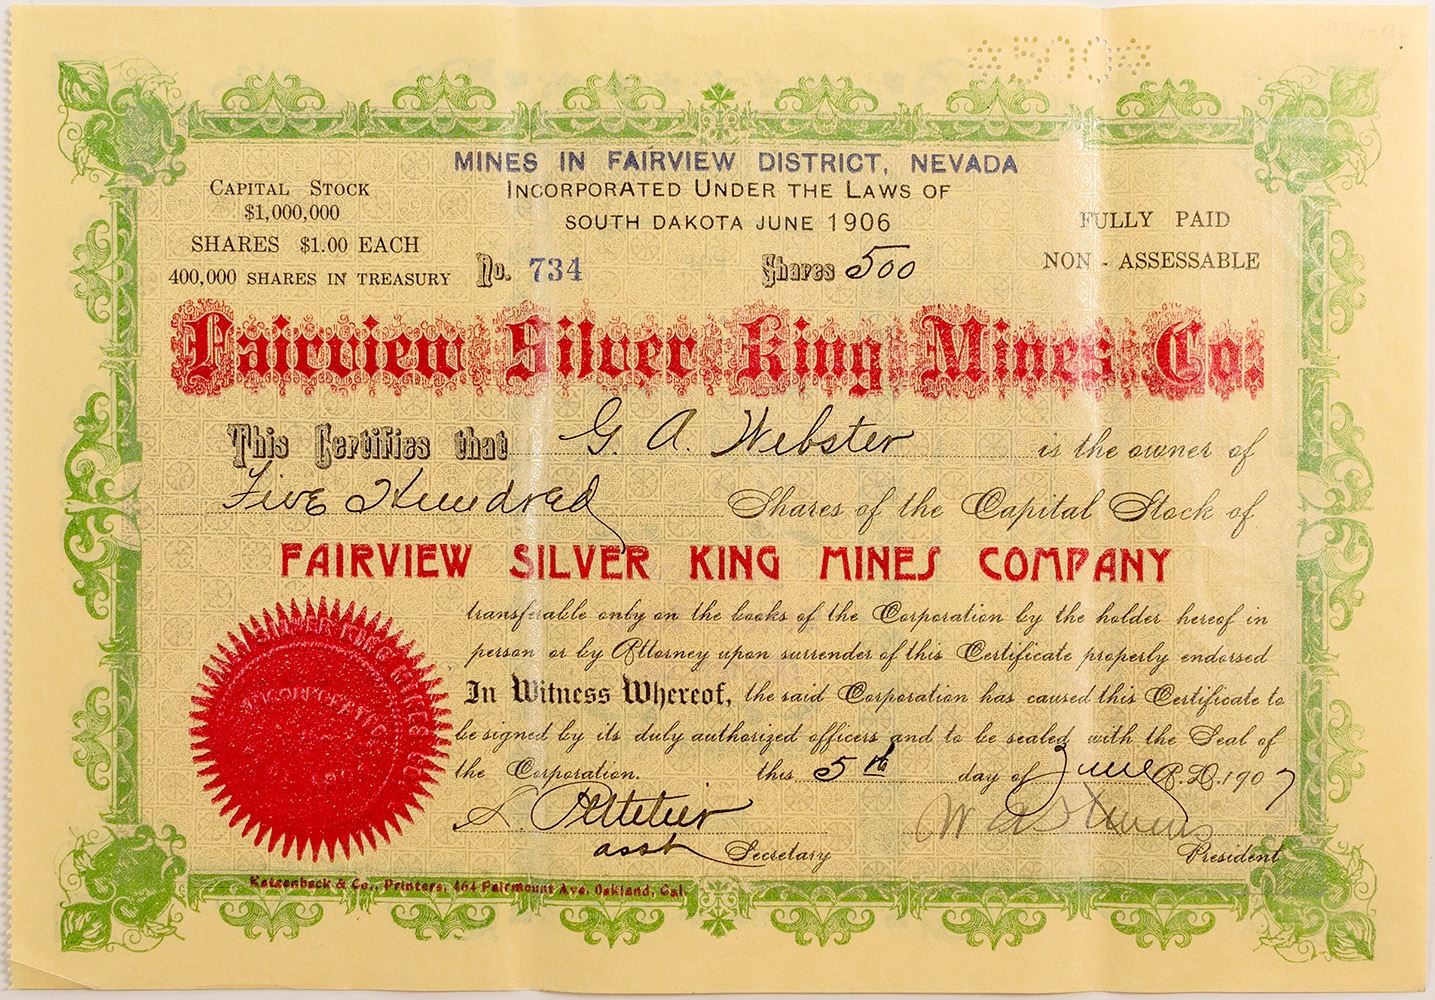 *500*
MINES IN FAIRVIEW DISTRICT, NEVADA
CAPITAL STOCK
$1,000,000
SHARES $1.00 EACH
400,000 SHARES IN TREASURY
INCORPORATED UNDER THE LAWS OF
SOUTH DAKOTA JUNE 1906
FULLY PAID
NON - ASSESSABLE
No. 734
Shares 500
Fairview Silver King Mines Co.
This Certifies that G. A. Webster is the owner of
Five Hundred Shares of the Capital Stock of
FAIRVIEW SILVER KING MINES COMPANY
transferable only on the books of the Corporation by the holder hereof in
person or by Attorney upon surrender of this Certificate properly endorsed
In Witness Whereof, the said Corporation has caused this Certificate to
be signed by its duly authorized officers and to be sealed with the Seal of
the Corporation. this 5th day of June A.D. 1907
Pelletier
asst Secretary
W
President
SILVER KING MINES CO.
INCORPORATED
Katzenback & Co., Printers, 464 Fairmount Ave. Oakland, Cal.